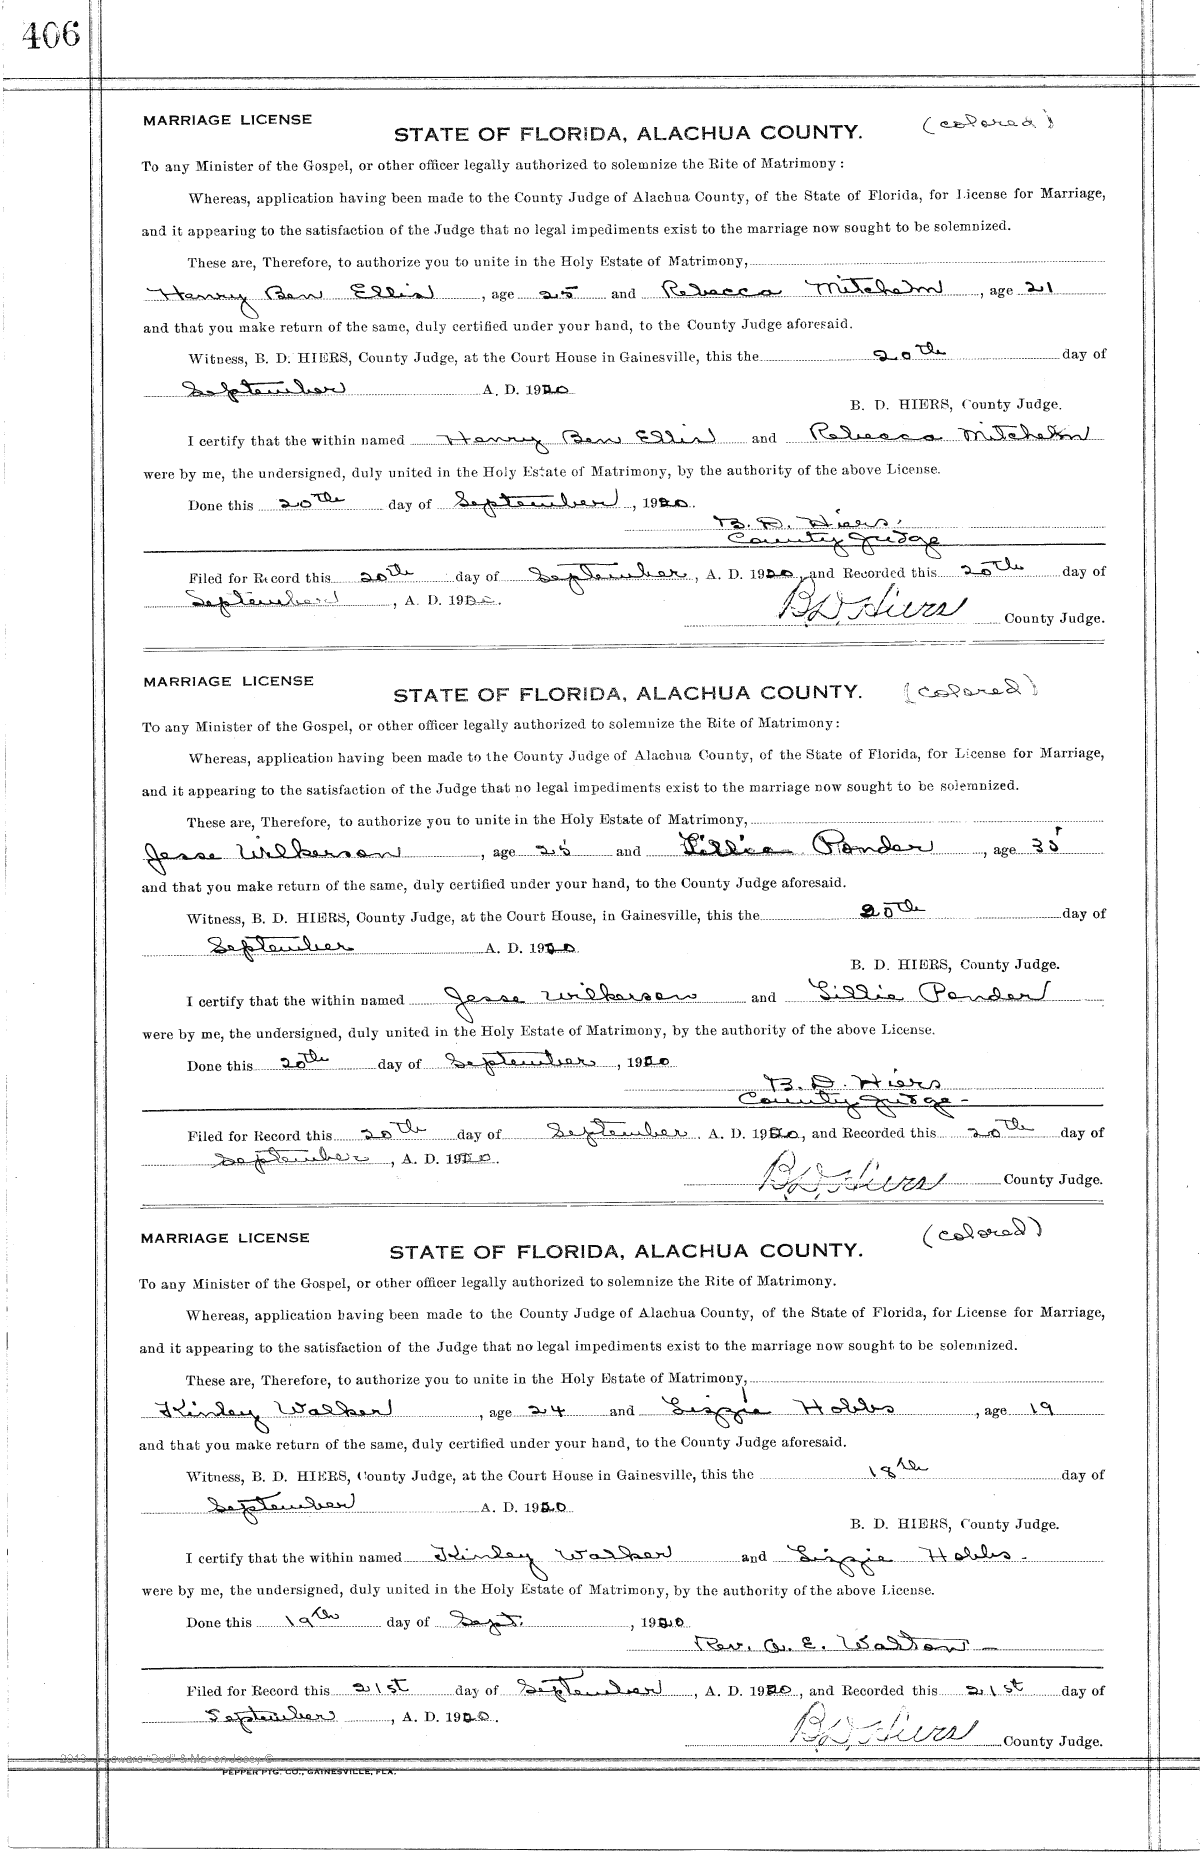 406
MARRIAGE LICENSE
STATE OF FLORIDA, ALACHUA COUNTY. (colored)
To any Minister of the Gospel, or other officer legally authorized to solemnize the Rite of Matrimony:
Whereas, application having been made to the County Judge of Alachua County, of the State of Florida, for License for Marriage,
and it appearing to the satisfaction of the Judge that no legal impediments exist to the marriage now sought to be solemnized.
These are, Therefore, to authorize you to unite in the Holy Estate of Matrimony,
Henry Ben Ellis, age 25 and Rebecca Mitchem, age 21
and that you make return of the same, duly certified under your hand, to the County Judge aforesaid.
Witness, B. D. HIERS, County Judge, at the Court House in Gainesville, this the 20th day of
September A. D. 1920
B. D. HIERS, County Judge.
I certify that the within named Henry Ben Ellis and Rebecca
were by me, the undersigned, duly united in the Holy Estate of Matrimony, by the authority of the above License.
Done this 20th day of September, 1920.
B. D. Hiers.
County Judge
Filed for Record this 20th day of September, A. D. 1920, and Recorded this 20th day of
September, A. D. 1920.
B. D. Hiers County Judge.
MARRIAGE LICENSE
STATE OF FLORIDA, ALACHUA COUNTY. (colored)
To any Minister of the Gospel, or other officer legally authorized to solemnize the Rite of Matrimony:
Whereas, application having been made to the County Judge of Alachua County, of the State of Florida, for License for Marriage,
and it appearing to the satisfaction of the Judge that no legal impediments exist to the marriage now sought to be solemnized.
These are, Therefore, to authorize you to unite in the Holy Estate of Matrimony,
Jesse Wilkerson, age 25 and Lillie Ponder, age 35
and that you make return of the same, duly certified under your hand, to the County Judge aforesaid.
Witness, B. D. HIERS, County Judge, at the Court House, in Gainesville, this the 20th day of
September A. D. 1920.
B. D. HIERS, County Judge.
I certify that the within named Jesse Wilkerson and Lillie Ponder
were by me, the undersigned, duly united in the Holy Estate of Matrimony, by the authority of the above License.
Done this 20th day of September, 1920
B. D. Hiers
County Judge-
Filed for Record this 20th day of September A. D. 1920, and Recorded this 20th day of
September, A. D. 1920.
B. D. Hiers County Judge.
MARRIAGE LICENSE (colored)
STATE OF FLORIDA, ALACHUA COUNTY.
To any Minister of the Gospel, or other officer legally authorized to solemnize the Rite of Matrimony.
Whereas, application having been made to the County Judge of Alachua County, of the State of Florida, for License for Marriage,
and it appearing to the satisfaction of the Judge that no legal impediments exist to the marriage now sought to be solemnized.
These are, Therefore, to authorize you to unite in the Holy Estate of Matrimony,
Kinley Walker, age 24 and Lizzie Hobbs, age 19
and that you make return of the same, duly certified under your hand, to the County Judge aforesaid.
Witness, B. D. HIERS, County Judge, at the Court House in Gainesville, this the 18th day of
September A. D. 1920
B. D. HIERS, County Judge.
I certify that the within named Kinley Walker and Lizzie Hobbs-
were by me, the undersigned, duly united in the Holy Estate of Matrimony, by the authority of the above License.
Done this 19th day of Sept., 1920
Rev. A. E. Walton-
Filed for Record this 21st day of September, A. D. 1920, and Recorded this 21st day of
September, A. D. 1920.
B. D. Hiers County Judge.
PEPPER PTG. CO., GAINESVILLE, FLA.